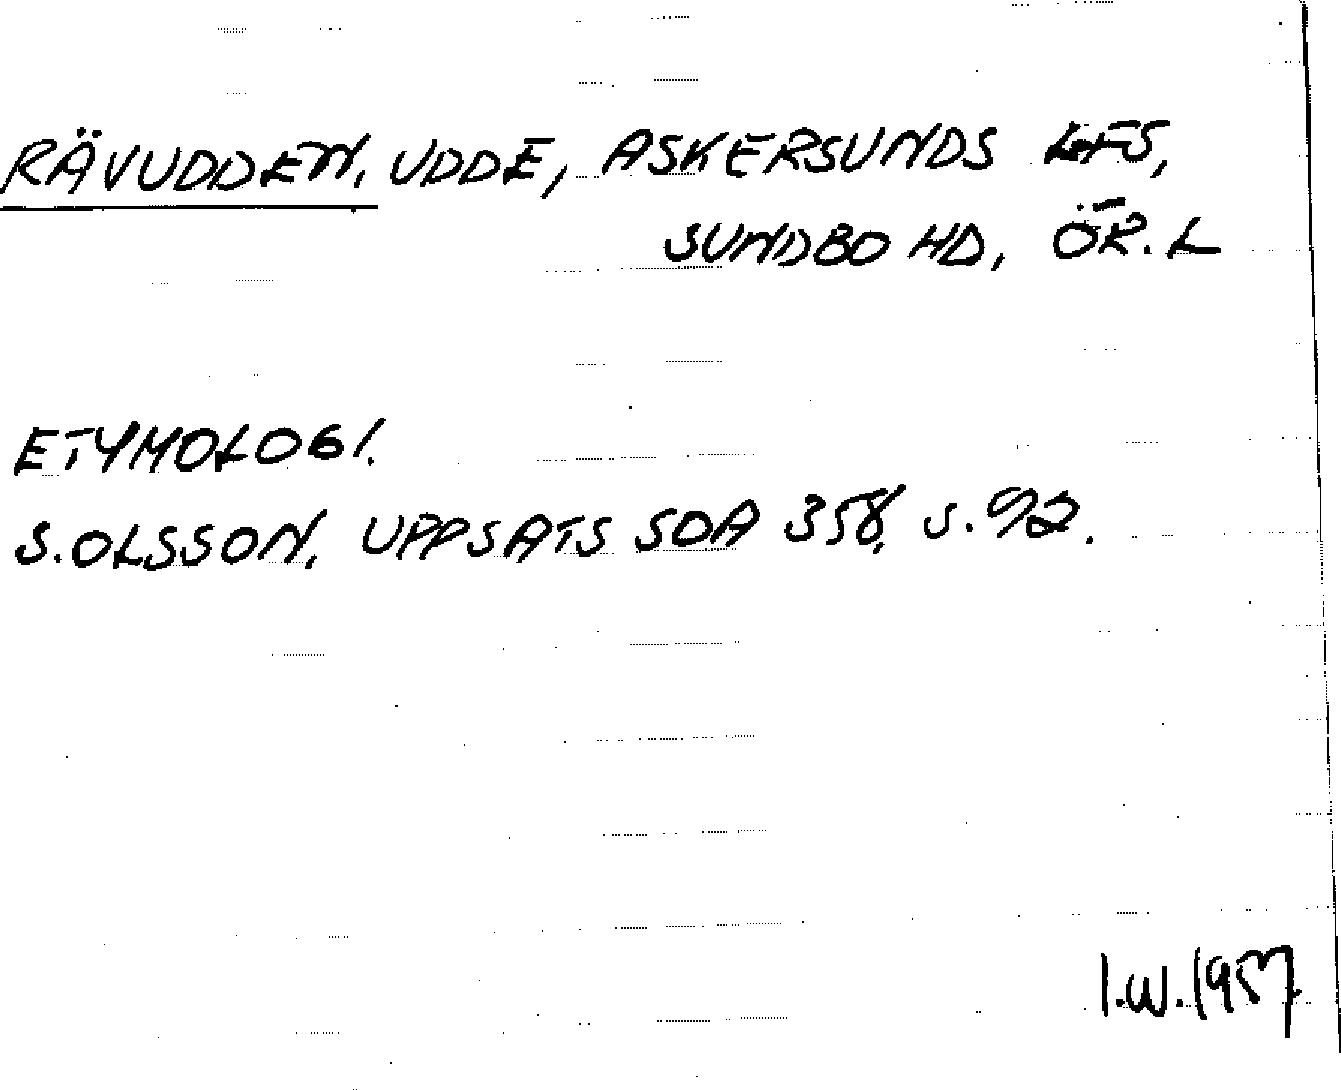 RÄVUDDEN, UDDE, ASKERSUNDS LFS,
SUNDBO HD, ÖR. L
ETYMOLOGI.
S. OLSSON, UPPSATS SOA 358, s. 92.
I.W. 1957